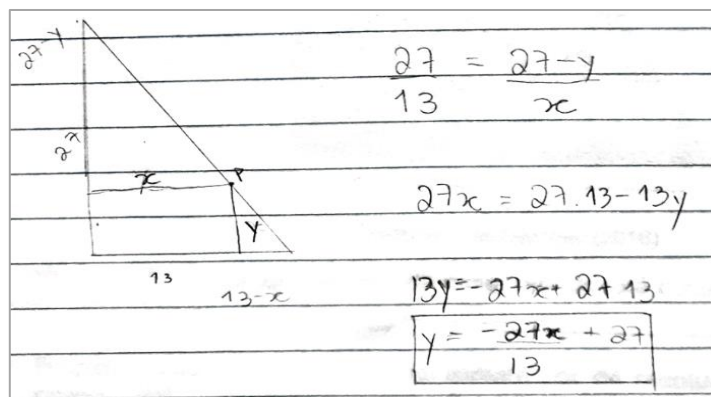 27-y
27
x
P
y
13
13-x
27/13 = 27-y/x
27x = 27.13-13y
13y=-27x+27 13
y = -27x/13 + 27